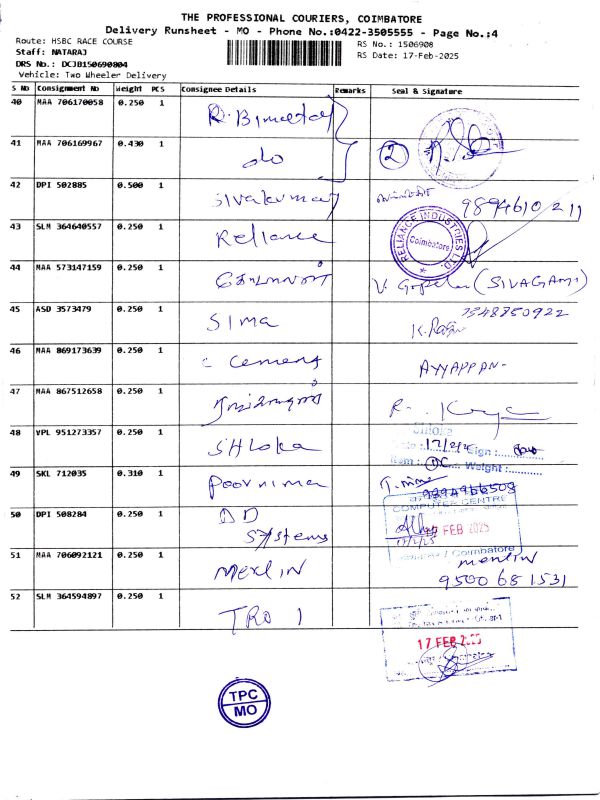 THE PROFESSIONAL COURIERS, COIMBATORE
Delivery Runsheet - MO - Phone No.:0422-3505555 - Page No.:4
Route: HSBC RACE COURSE
Staff: NATARAJ
DRS No.: DCJB150690804
Vehicle: Two Wheeler Delivery
RS No.: 1506908
RS Date: 17-Feb-2025
S No Consignment No Weight PCS Consignee Details Remarks Seal & Signature
40 MAA 706170058 0.250 1
41 MAA 706169967 0.430 1 do 2
42 DPI 502885 0.500 1 Sivakumar 9894610211
43 SLM 364640557 0.250 1 Reliance RELIANCE INDUSTRIES LTD. Coimbatore
44 MAA 573147159 0.250 1 V. Gopalan (SIVAGAMI)
45 ASD 3573479 0.250 1 Sima
46 MAA 869173639 0.250 1 AYYAPPAN-
47 MAA 867512658 0.250 1
48 VPL 951273357 0.250 1 SHloka Sign :
Weight:
49 SKL 712035 0.310 1 Poornima
COMPUTER CENTRE
50 DPI 508284 0.250 1 DD Systems FEB 2025
Coimbatore
51 MAA 706092121 0.250 1 MerlIN merlin
9500681531
52 SLM 364594897 0.250 1 TRO 1
17 FEB 2025
TPC
MO